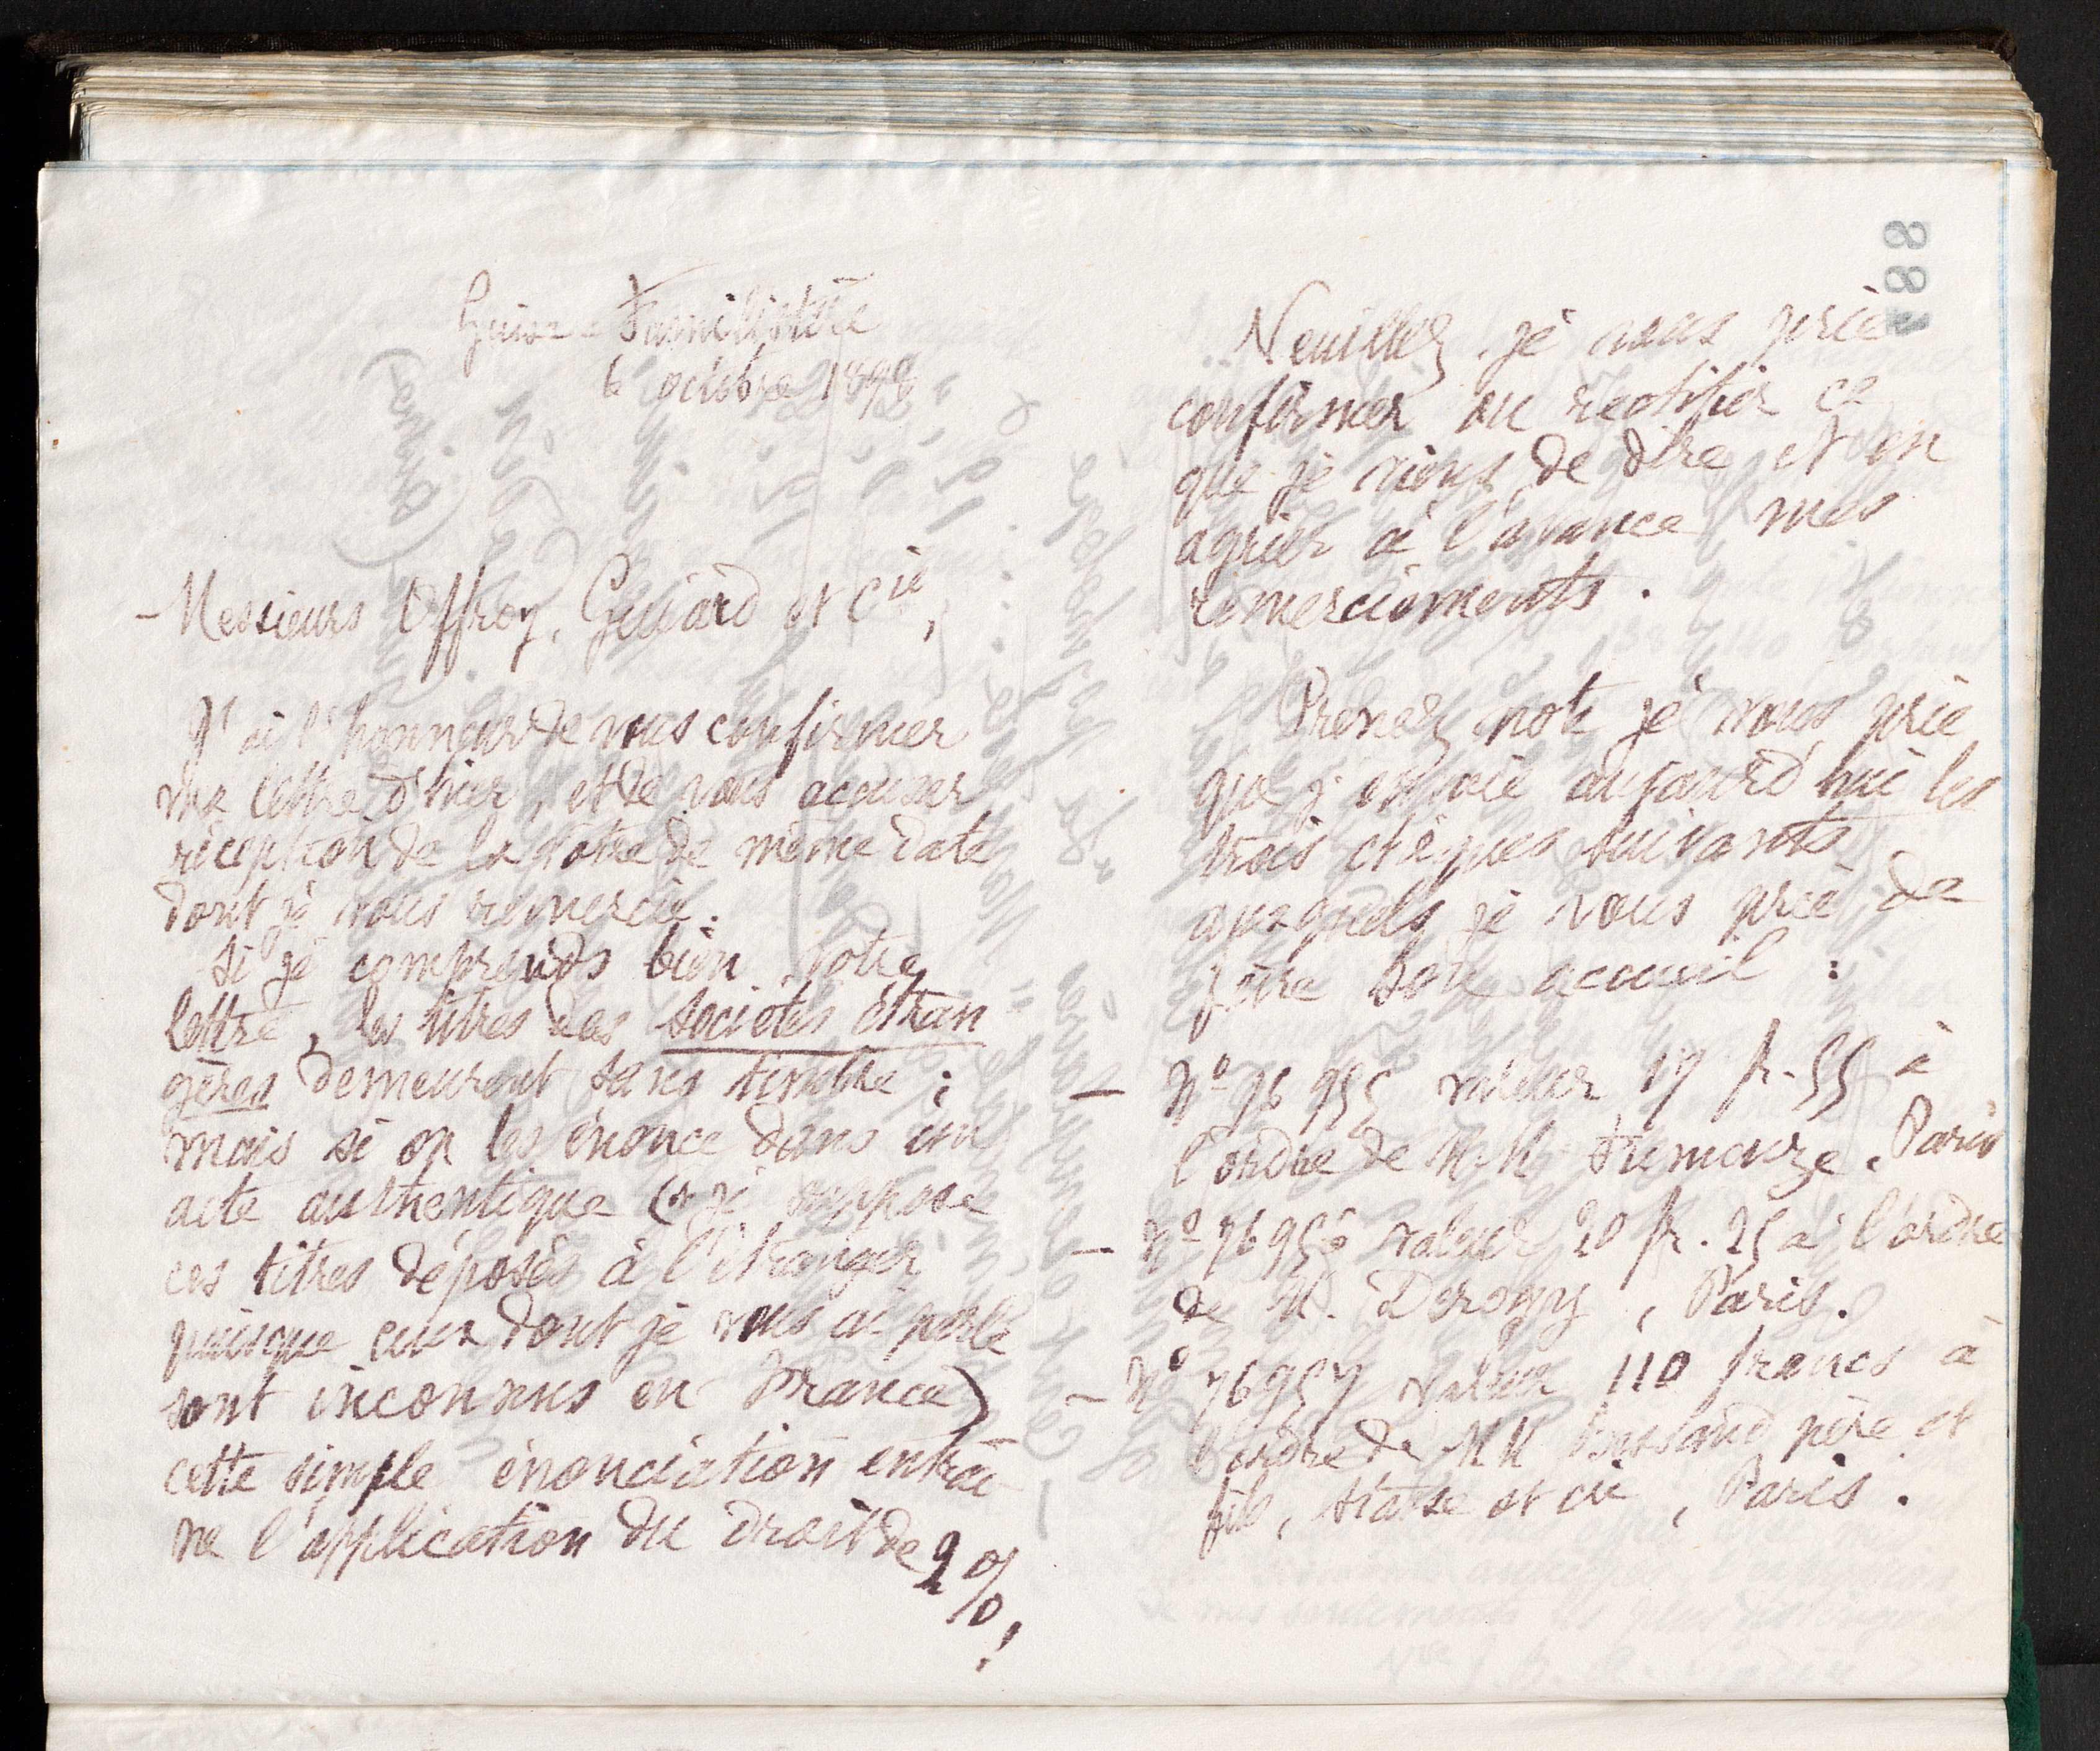 Guise - Familistère
6 octobre 1898
- Messieurs Offroy, Guiard et Cie,
J'ai l'honneur de vous confirmer
ma lettre d'hier, et de vous accuser
réception de la vôtre de même date
dont je vous remercie.
Si je comprends bien votre
lettre, les titres des sociétés étran
gères demeurent sans timbre ;
mais si on les énonce dans un
acte authentique (et je suppose
ces titres déposés à l'étranger
puisque ceux dont je vous ai parlé
sont inconnus en France)
cette simple énonciation entraî-
ne l'application du droit de 2 %!
188
Veuillez je vous prie
confirmer ou rectifier ce
que je viens de dire et en
agréer à l'avance mes
remerciements.
Prenez note je vous prie
que j'envoie aujourd'hui les
trois chèques suivants
auxquels je vous prie de
faire bon accueil :
- No 76 955 valeur 17 fr. 55 à
l'ordre de M.M Fumouze, Paris
- No 76956 valeur 20 fr. 25 à l'ordre
de M. Derogy, Paris.
- No 76957 valeur 110 francs à
l'ordre de MM père et
fils, et cie, Paris.